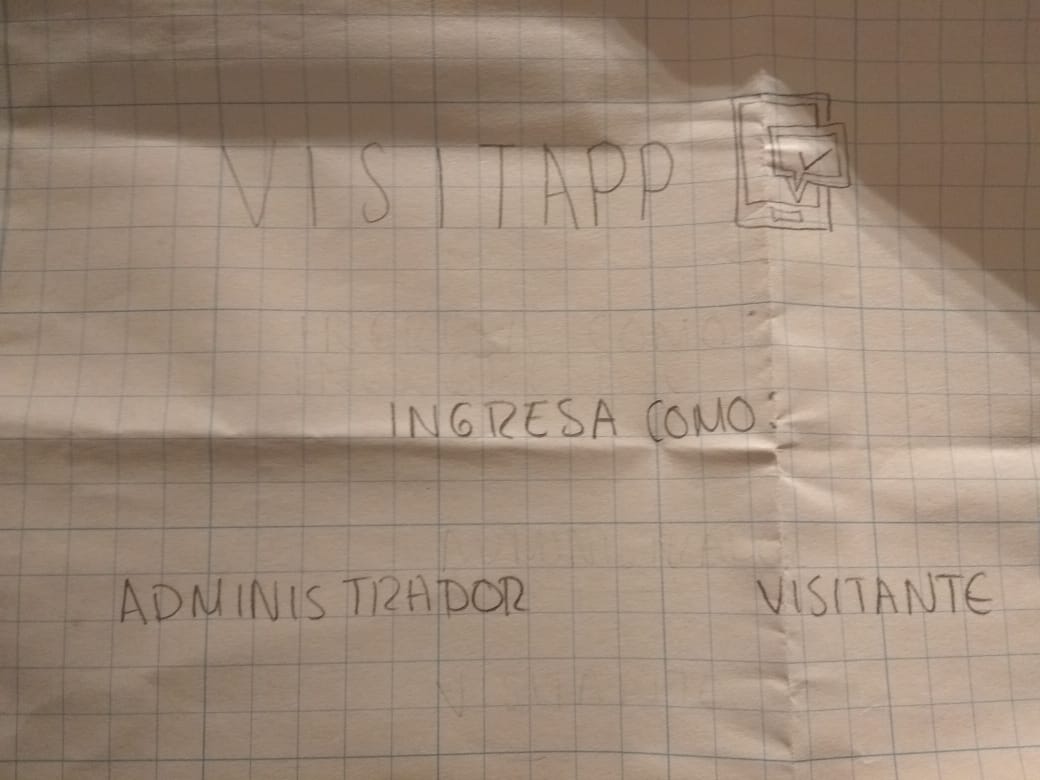 VISITAPP
INGRESA COMO:
ADMINISTRADOR VISITANTE